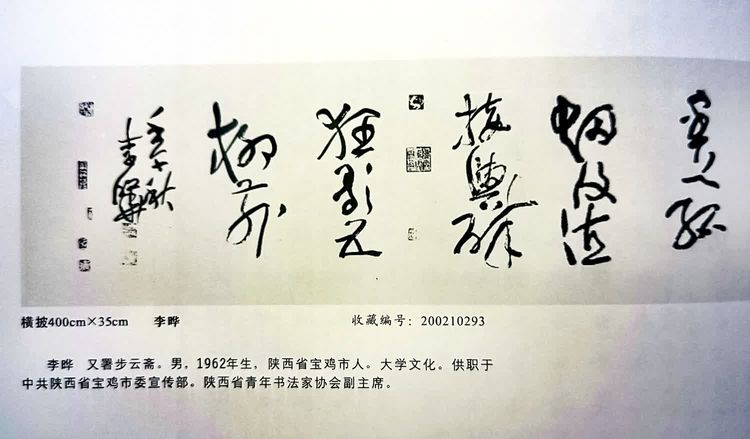 里上孤
烟復值
接輿醉
狂歌五
柳前
壬午秋
李曄
横披400cm×35cm 李晔 收藏编号：200210293
李晔 又署步云斋。男，1962年生，陕西省宝鸡市人。大学文化。供职于
中共陕西省宝鸡市委宣传部。陕西省青年书法家协会副主席。